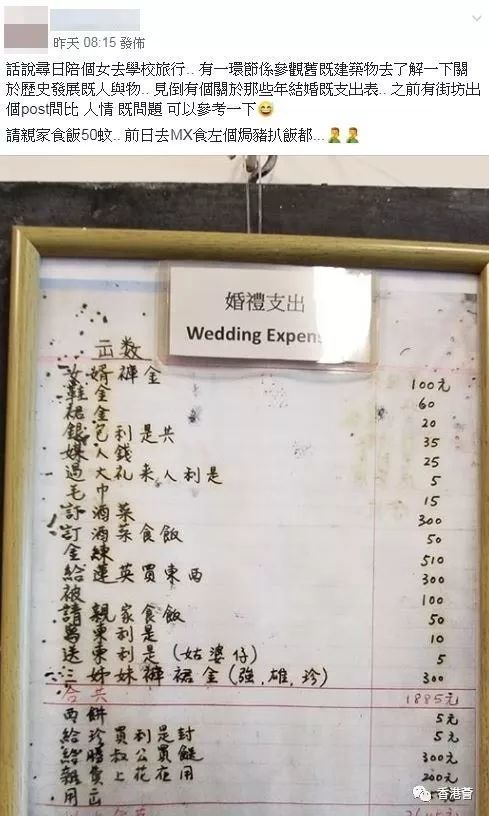 昨天 08:15 發佈
話說尋日陪個女去學校旅行.. 有一環節係參觀舊既建築物去了解一下關
於歷史發展既人與物.. 見倒有個關於那些年結婚既支出表.. 之前有街坊出
個post問比 人情 既問題 可以參考一下😅
請親家食飯50蚊.. 前日去MX食左個焗豬扒飯都...🤦‍♂️🤦‍♂️
婚禮支出
Wedding Expen
出数
女婿褲金 100元
鞋金 60
裙金 20
銀包利是共 35
媒人錢 25
過大礼来人利是 5
毛巾 15
訂酒菜 300
訂酒菜食飯 50
金鍊 510
給蓮英買東西 300
被 100
請親家食飯 50
東利是 10
送東利是(姑婆仔) 5
三姊妹褲裙金(強,雄,珍) 300
合共 1885元
西餅 5元
給珍買利是封 5元
給叔公買餸 300元
雜費上花在用 200元
用出
香港薈